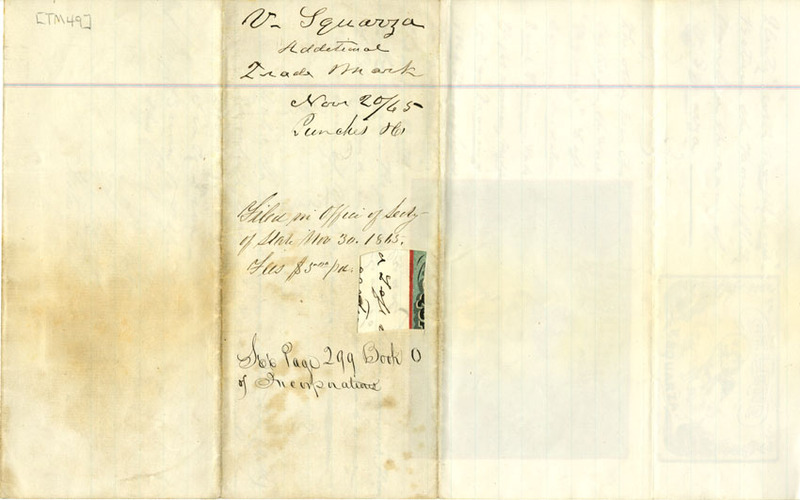 [TM49]
V. Squarza
Additional
Trade Mark
Nov 20/65
Punches &c
Filed in Office of Secty
of State Nov 30. 1865.
Fees $5.00 pd.
See Page 299 Book O
of Incorporations